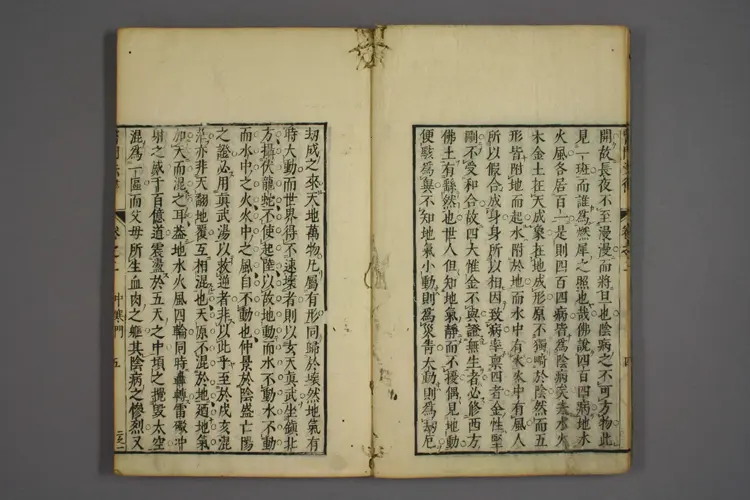 開故長夜不至漫漫而將旦也陰病之不可方物此
見一斑而誰為燃犀之照也哉佛說四百四病地水
火風各居百一是則四百四病皆為陰病矣夫水火
木金土在天成象在地成形原不獨畸於陰然而五
形皆附地而起水附於地而水中有火水中有風人
所以假合成身身所以相因致病率稟四者金性堅
剛不受和合故四大惟金不與證無生者必修西方
佛土有繇然也世人但知地氣靜而不擾偶見地動
便駭為異不知地氣小動則為災眚大動則為劫厄
劫成之來天地萬物凡屬有形同歸於壞然地氣有
時大動而世界得不速壞者則以玄天真武坐鎮北
方攝伏龍蛇不使起陸以故地動而水不動水不動
而水中之火火中之風自不動也仲景於陰盛亡陽
之證必用真武湯以救逆者非以此乎至於戌亥混
茫亦非天翻地覆互相混也天原不混於地乃地氣
加天而混之耳蓋地水火風四輪同時轟轉雷礮冲
射之威千百億道震盪於五天之中頃之攪毀太空
混為一區而父母所生血肉之軀其陰病之慘烈又
中寒門
五